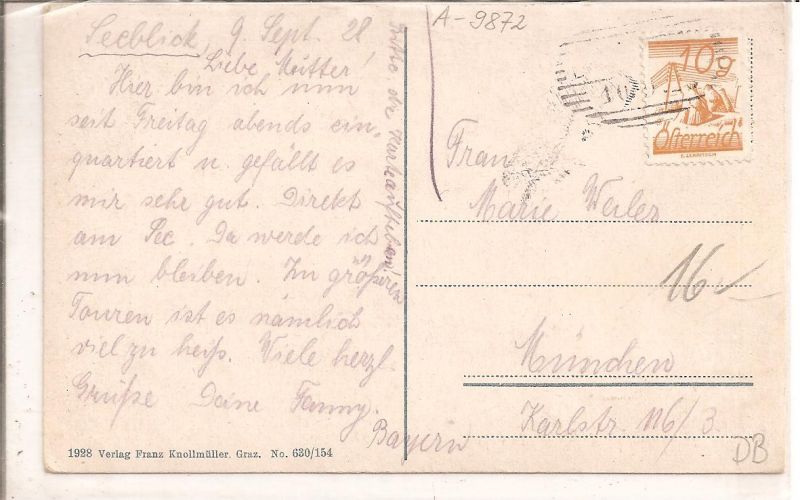 Seeblick, 9. Sept. 28
Liebe Mutter!
Hier bin ich nun
seit Freitag abends ein-
quartiert u. gefällt es
mir sehr gut. Direkt
am See. Da werde ich
nun bleiben. Zu größeren
Touren ist es nämlich
viel zu heiß. Viele herzl.
Grüße Deine Fanny.
Bitte die
A-9872
10g
Österreich
Frau
Marie Weiler
16
München
Karlstr. 116/3.
Bayern
1928 Verlag Franz Knollmüller. Graz. No. 630/154
DB